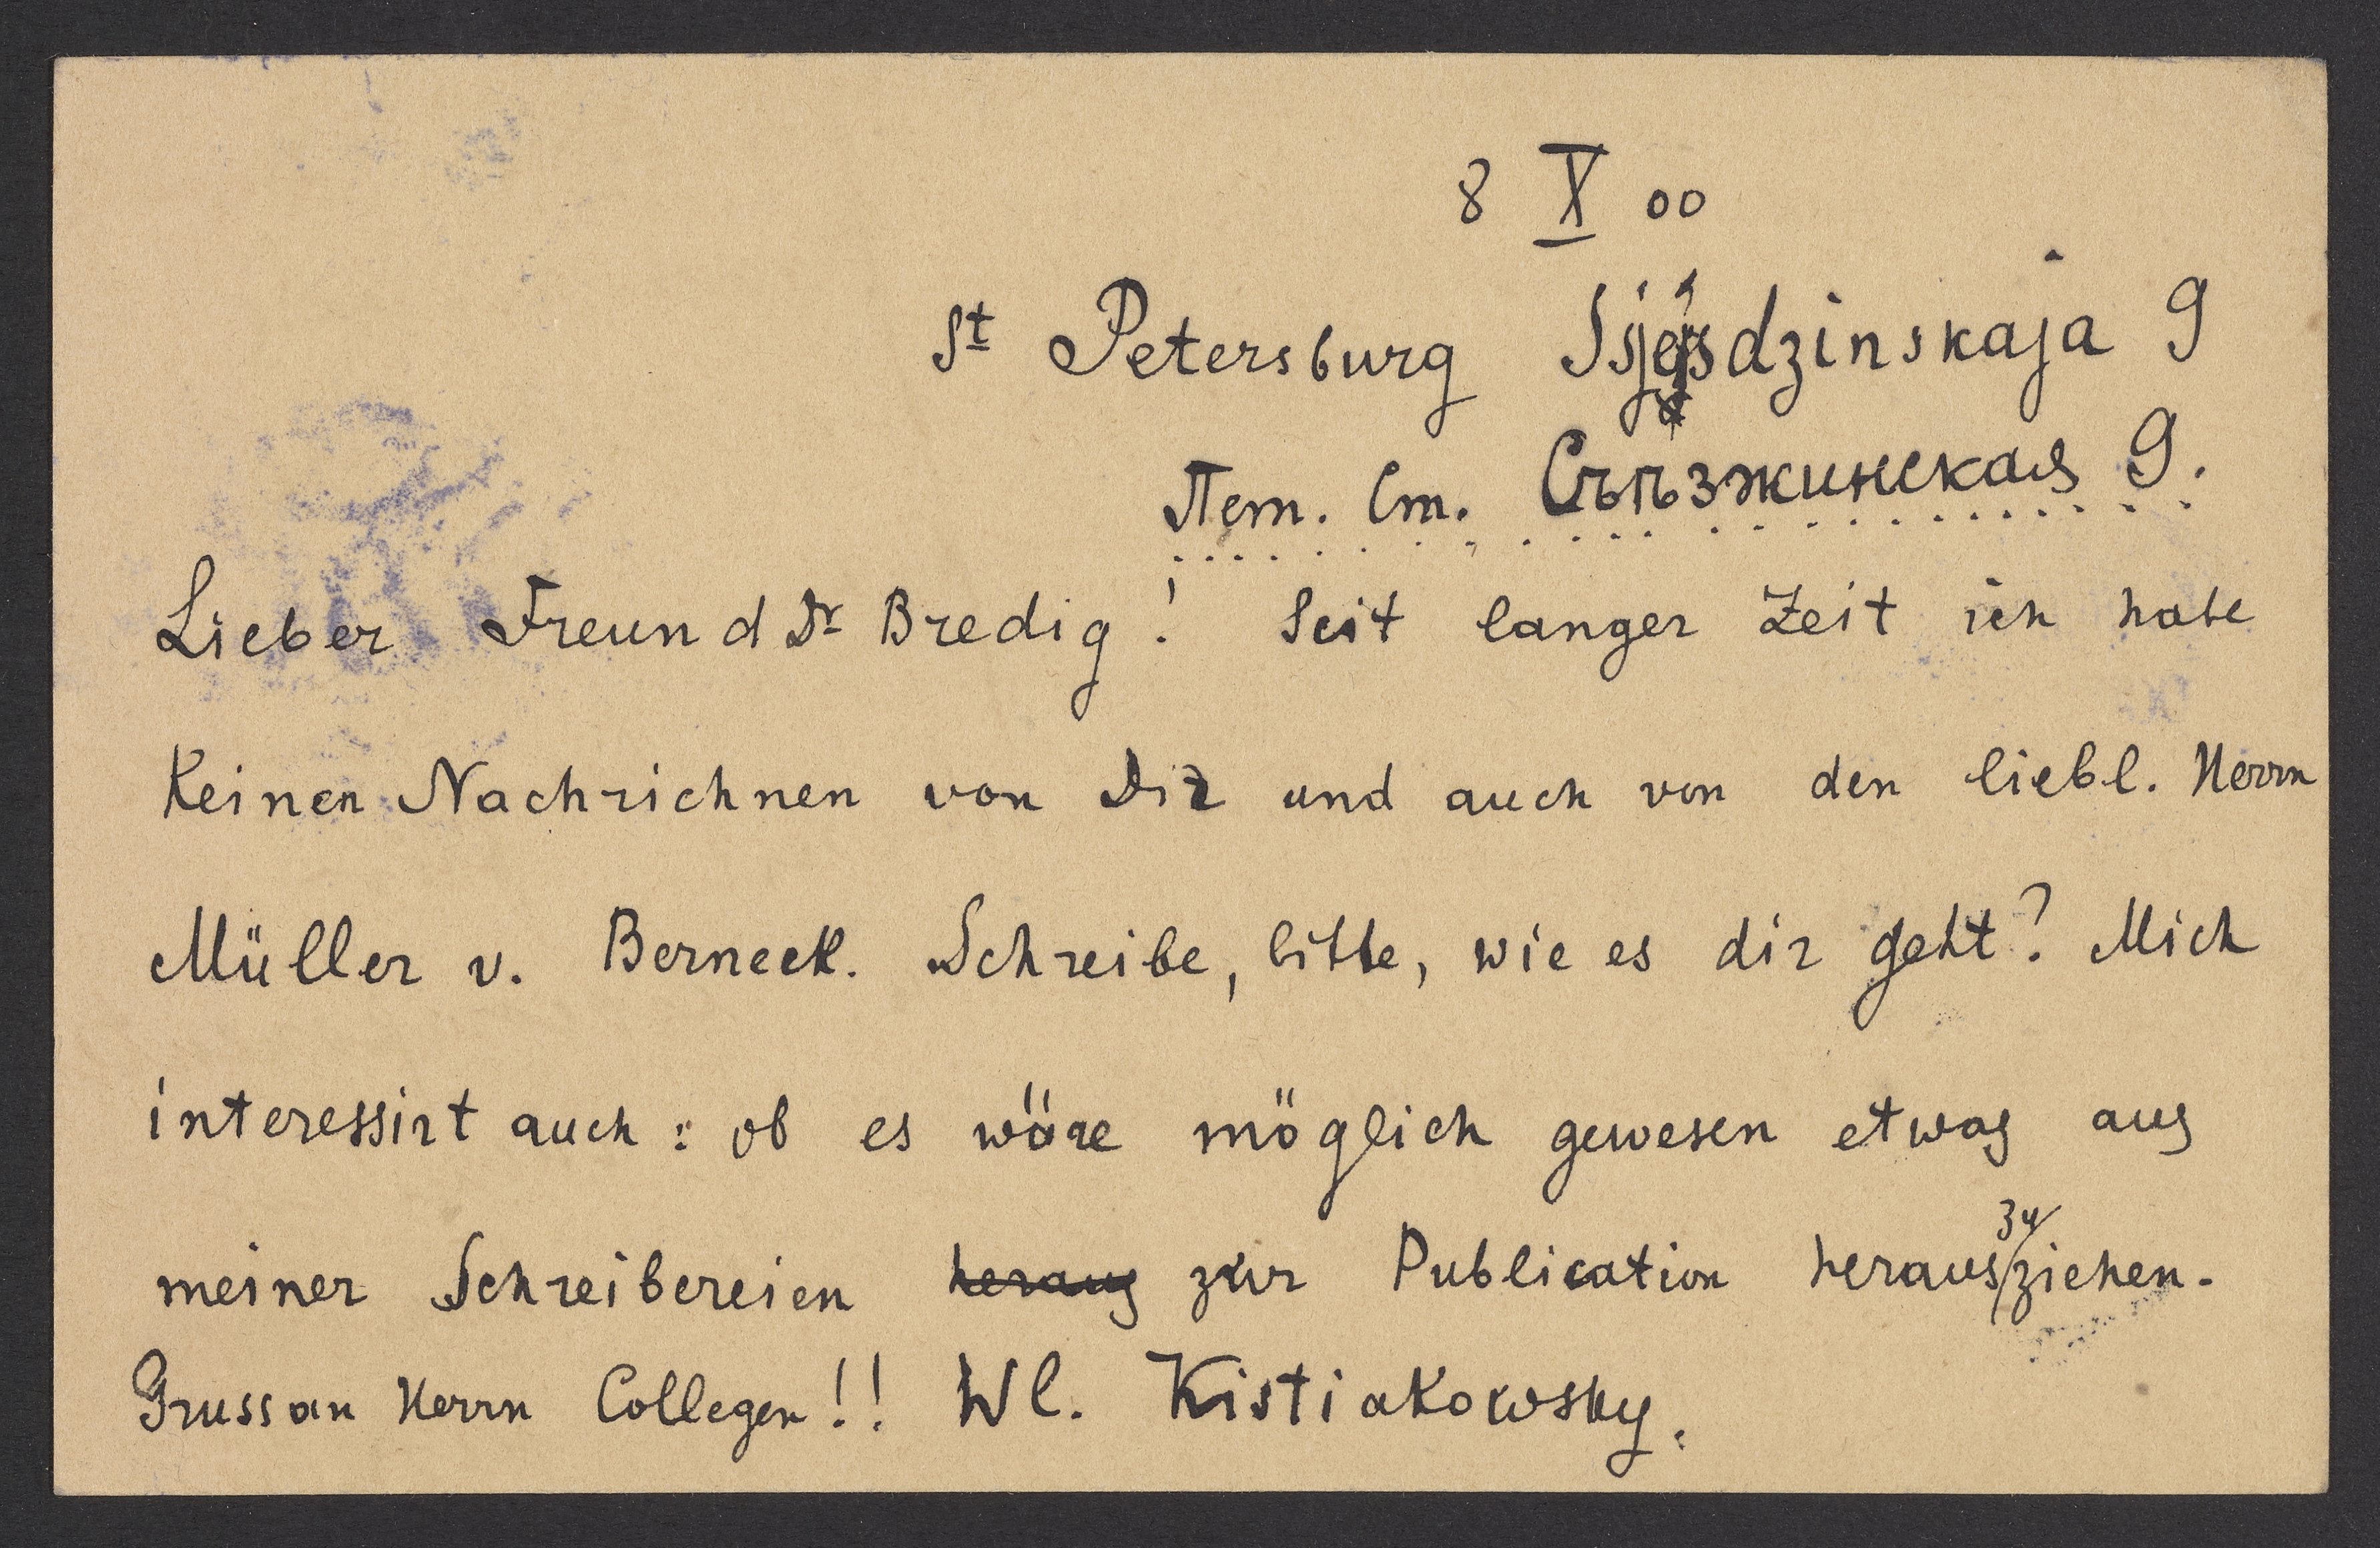 8 X 00
St Petersburg Sjesdzinskaja 9
Пет. Ст. Съѣзжинская 9.
Lieber Freund Dr Bredig! Seit langer Zeit ich habe
Keinen Nachrichnen von Dir und auch von den liebl. Herrn
Müller v. Berneck. Schreibe, bitte, wie es dir geht? Mich
interessirt auch: ob es wäre möglich gewesen etwas aus
meiner Schreibereien heraus zur Publication herauszuziehen.
Gruss an Herrn Collegen!! Wl. Kistiakowsky.